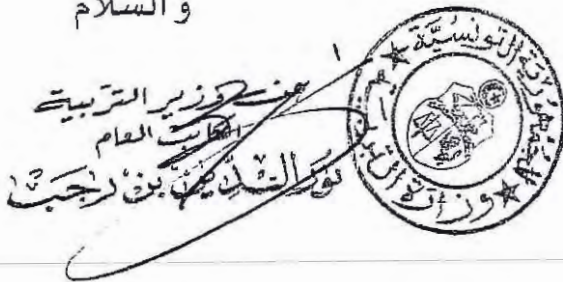 والسلام
عن وزير التربية
الكاتب العام
نور الدين بن رجب
الجمهورية التونسية
وزارة التربية